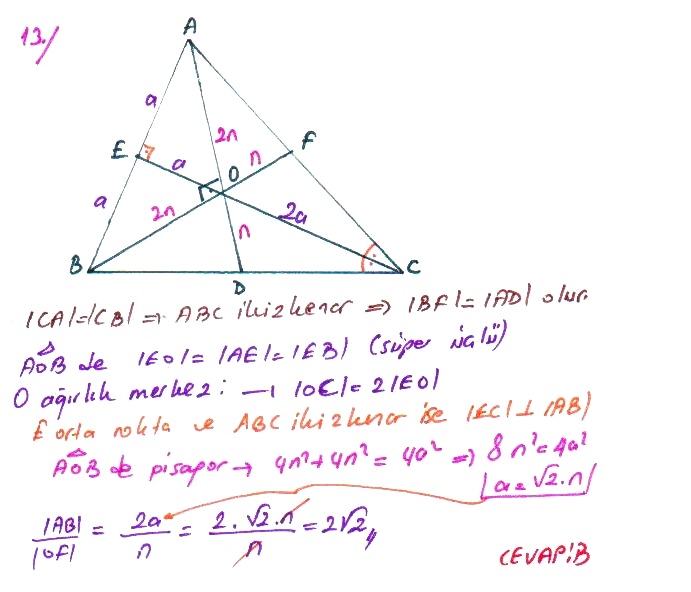 13./
A
a
E
2n
F
n
a
O
a
2n
2a
n
B
D
C
|CA|=|CB| ⇒ ABC ikizkenar ⇒ |BF|=|AD| olur.
AOB de |EO|=|AE|=|EB| (süper üçlü)
O ağırlık merkez: → |OC|=2|EO|
E orta nokta ve ABC ikizkenar ise |EC|⊥|AB|
AOB de pisapor → 4n²+4n²=4a² ⇒ 8n²=4a²
a=√2.n
|AB|/|OF| = 2a/n = 2.√2.n/n = 2√2//
CEVAP:B